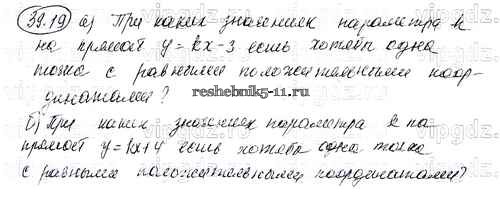 39.19 а) При каких значениях параметра k
на прямой y = kx - 3 есть хотябы одна
точка с равными положительными коор-
динатами?
reshebnik5-11.ru
б) При каких значениях параметра k на
прямой y = kx + 4 есть хотябы одна точка
с равными положительными координатами?